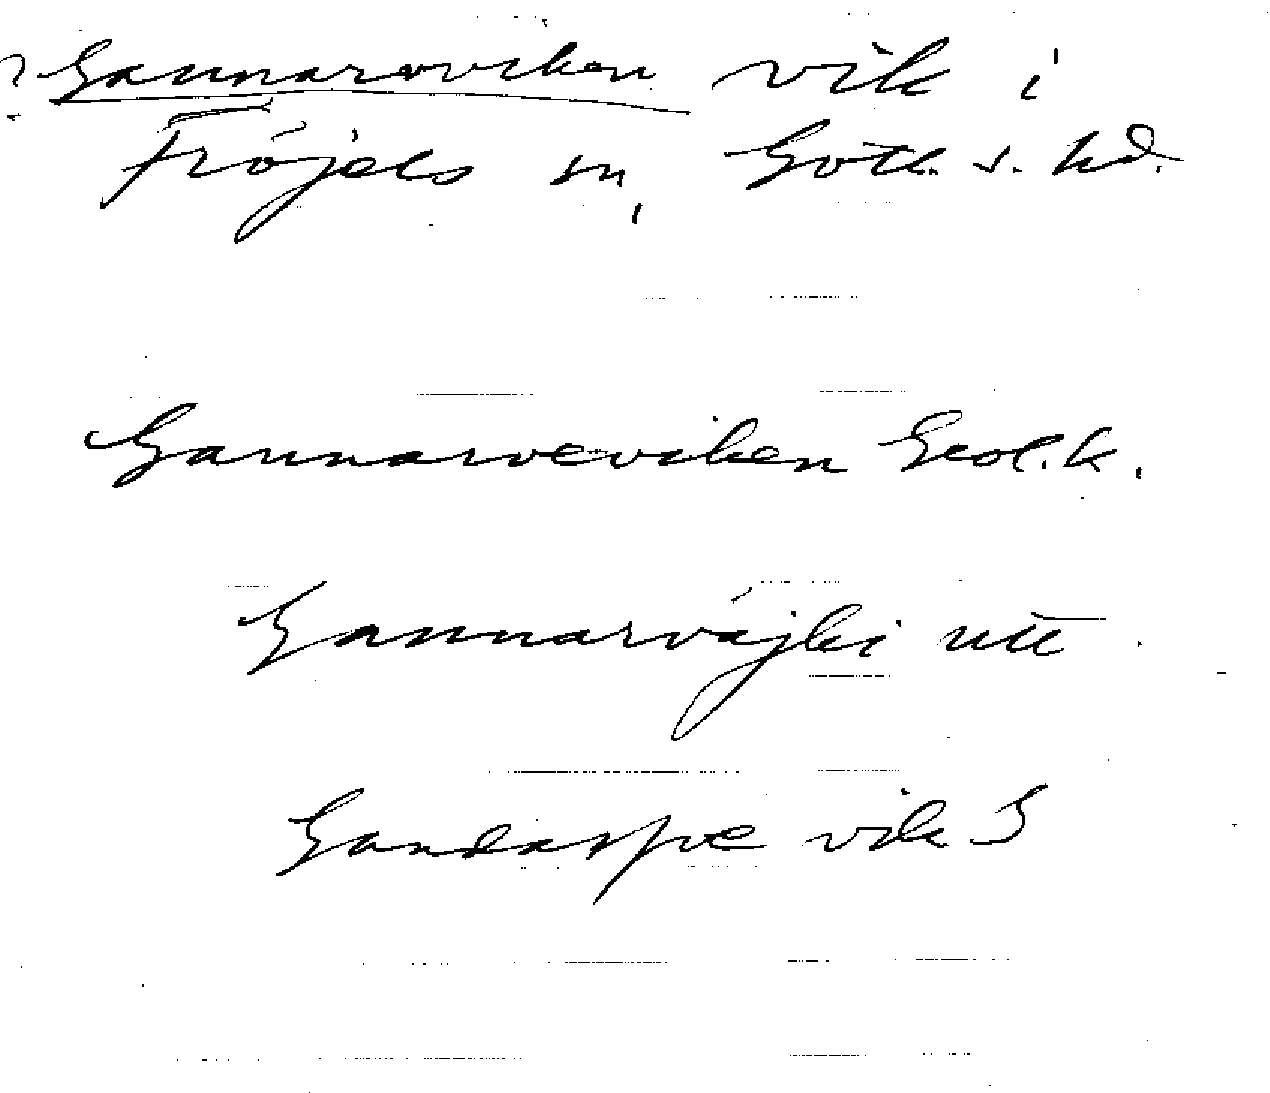 ? Gannarvviken vik i
Fröjels sn, Gotl. s. hd.
Gannarveviken Geol. k.
Gannarväjki utt
Gandarfve vik S